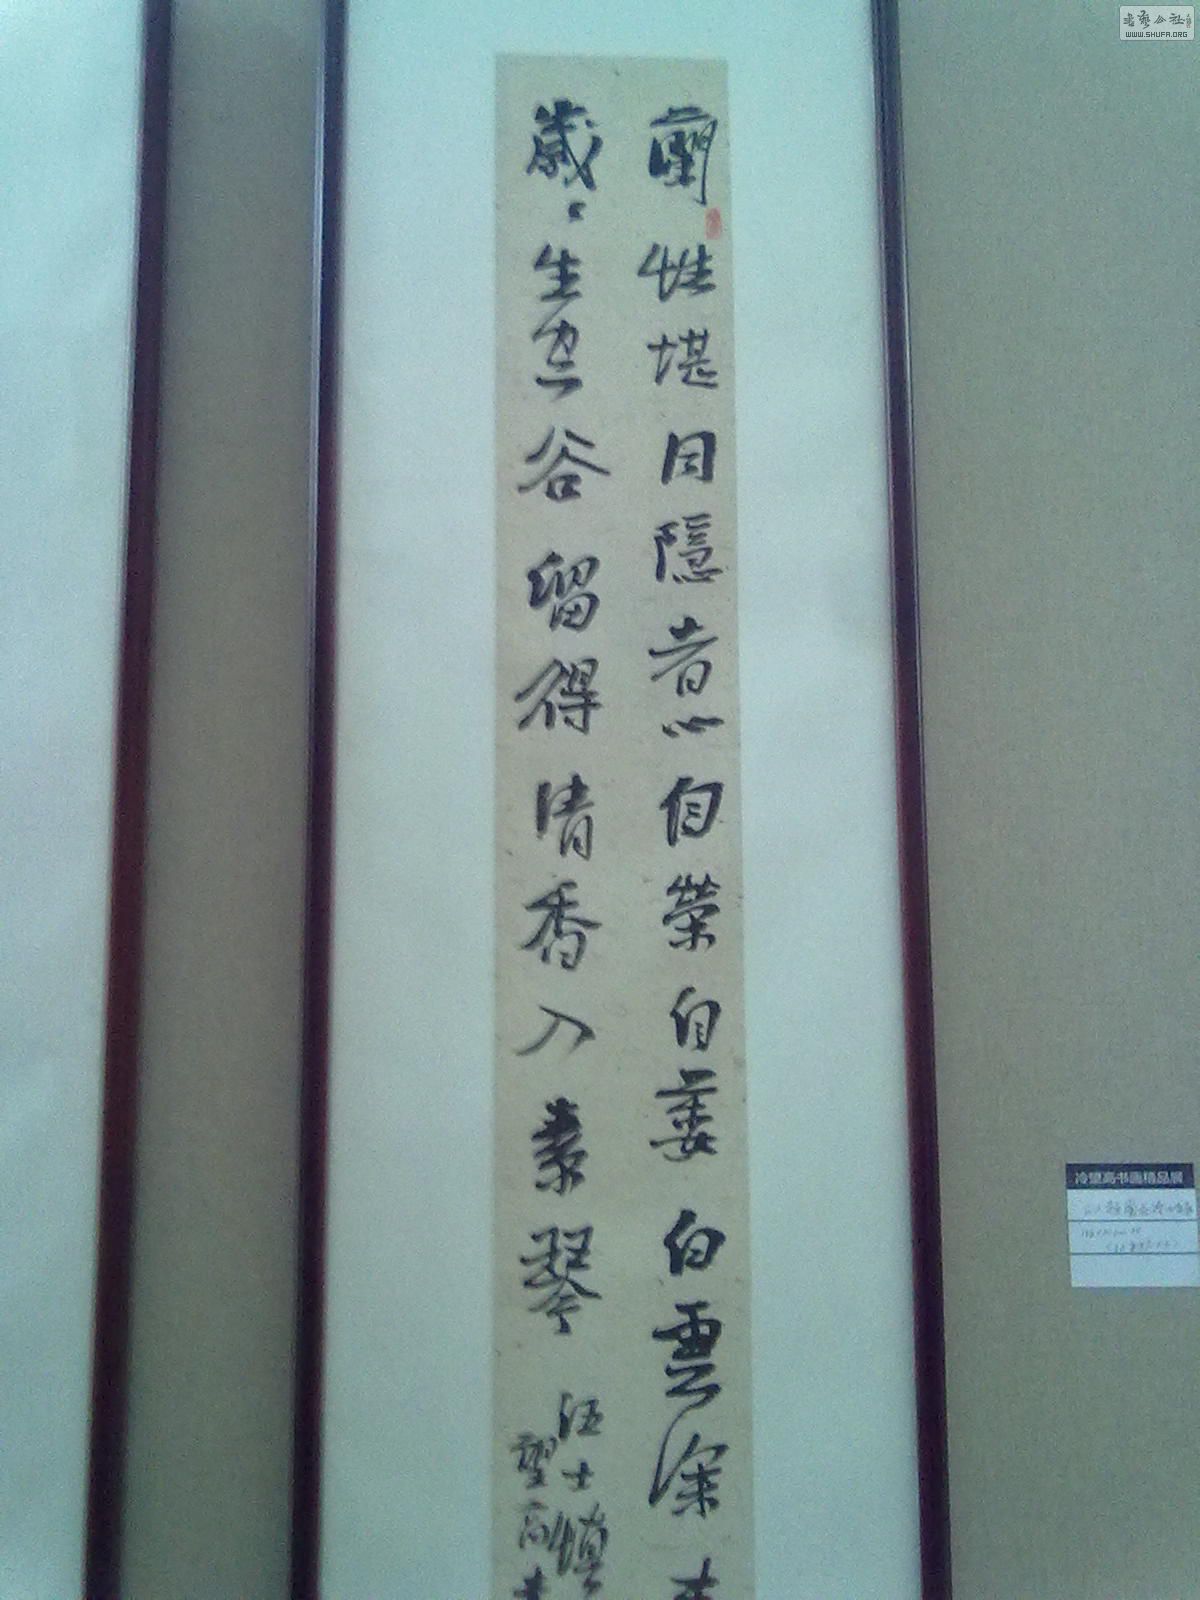 蘭性堪同隱者心自榮自萎白雲深春
歲々生空谷留得清香入素琴
汪士慎
望高書
冷望高书画精品展
書藝公社
WWW.SHUFA.ORG